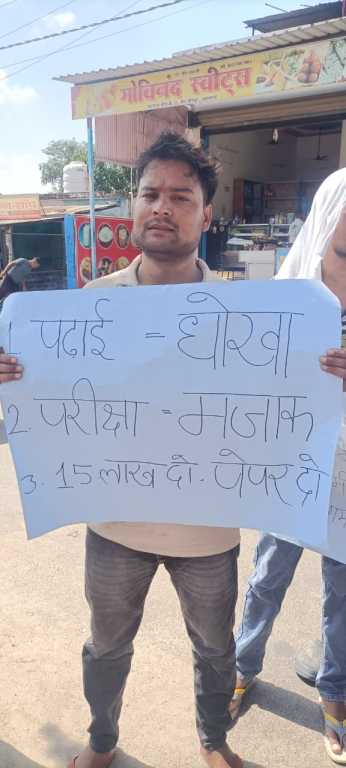 गोविन्द स्वीट्स
1. पढाई = धोखा
2. परीक्षा = मजाक
3. 15 लाख दो. पेपर दो